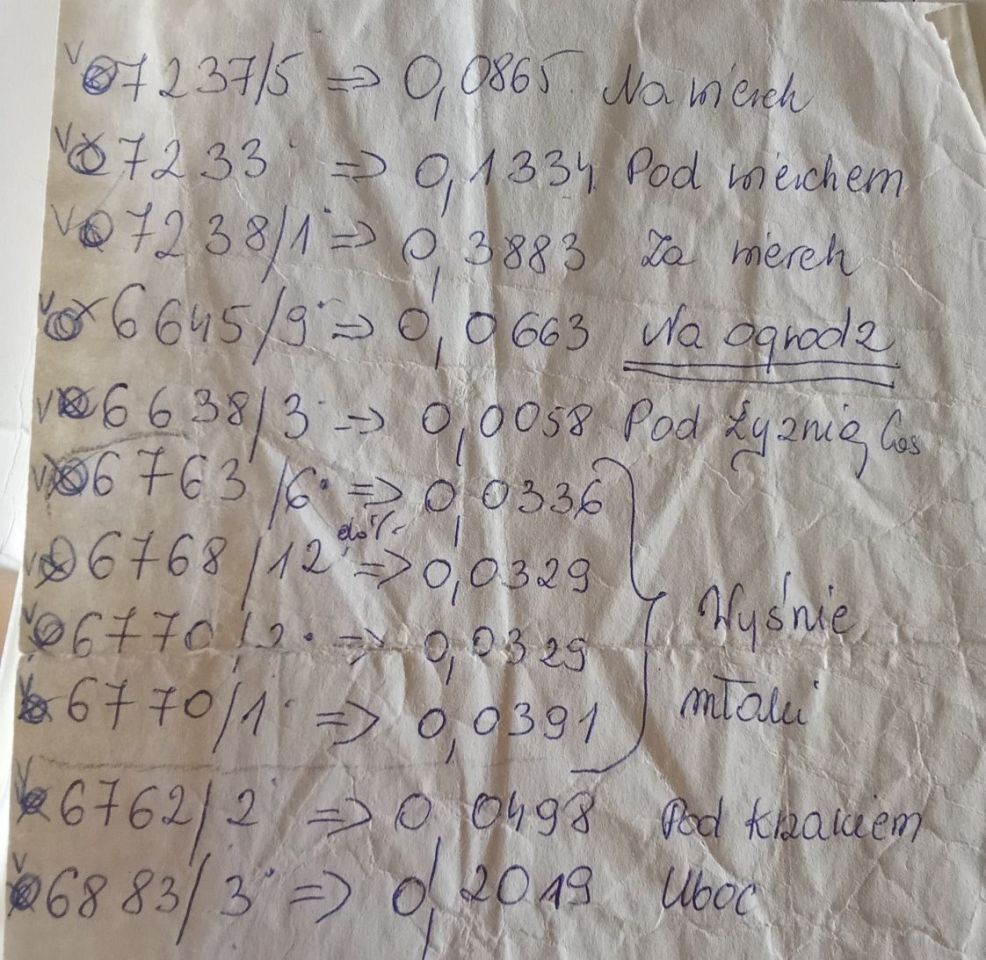 7237/5 => 0,0865 Na wierch
7233 => 0,1334 Pod wierchem
7238/1 => 0,3883 Za wierch
6645/9 => 0,0663 Na ogrodz
6638/3 => 0,0058 Pod Łyznią
6763/6 => 0,0336
6768/12 => 0,0329
6770/2 => 0,0329
6770/1 => 0,0391
Wyśnie
młaki
6762/2 => 0,0498 Pod krzakiem
6883/3 => 0,2019 Uboc